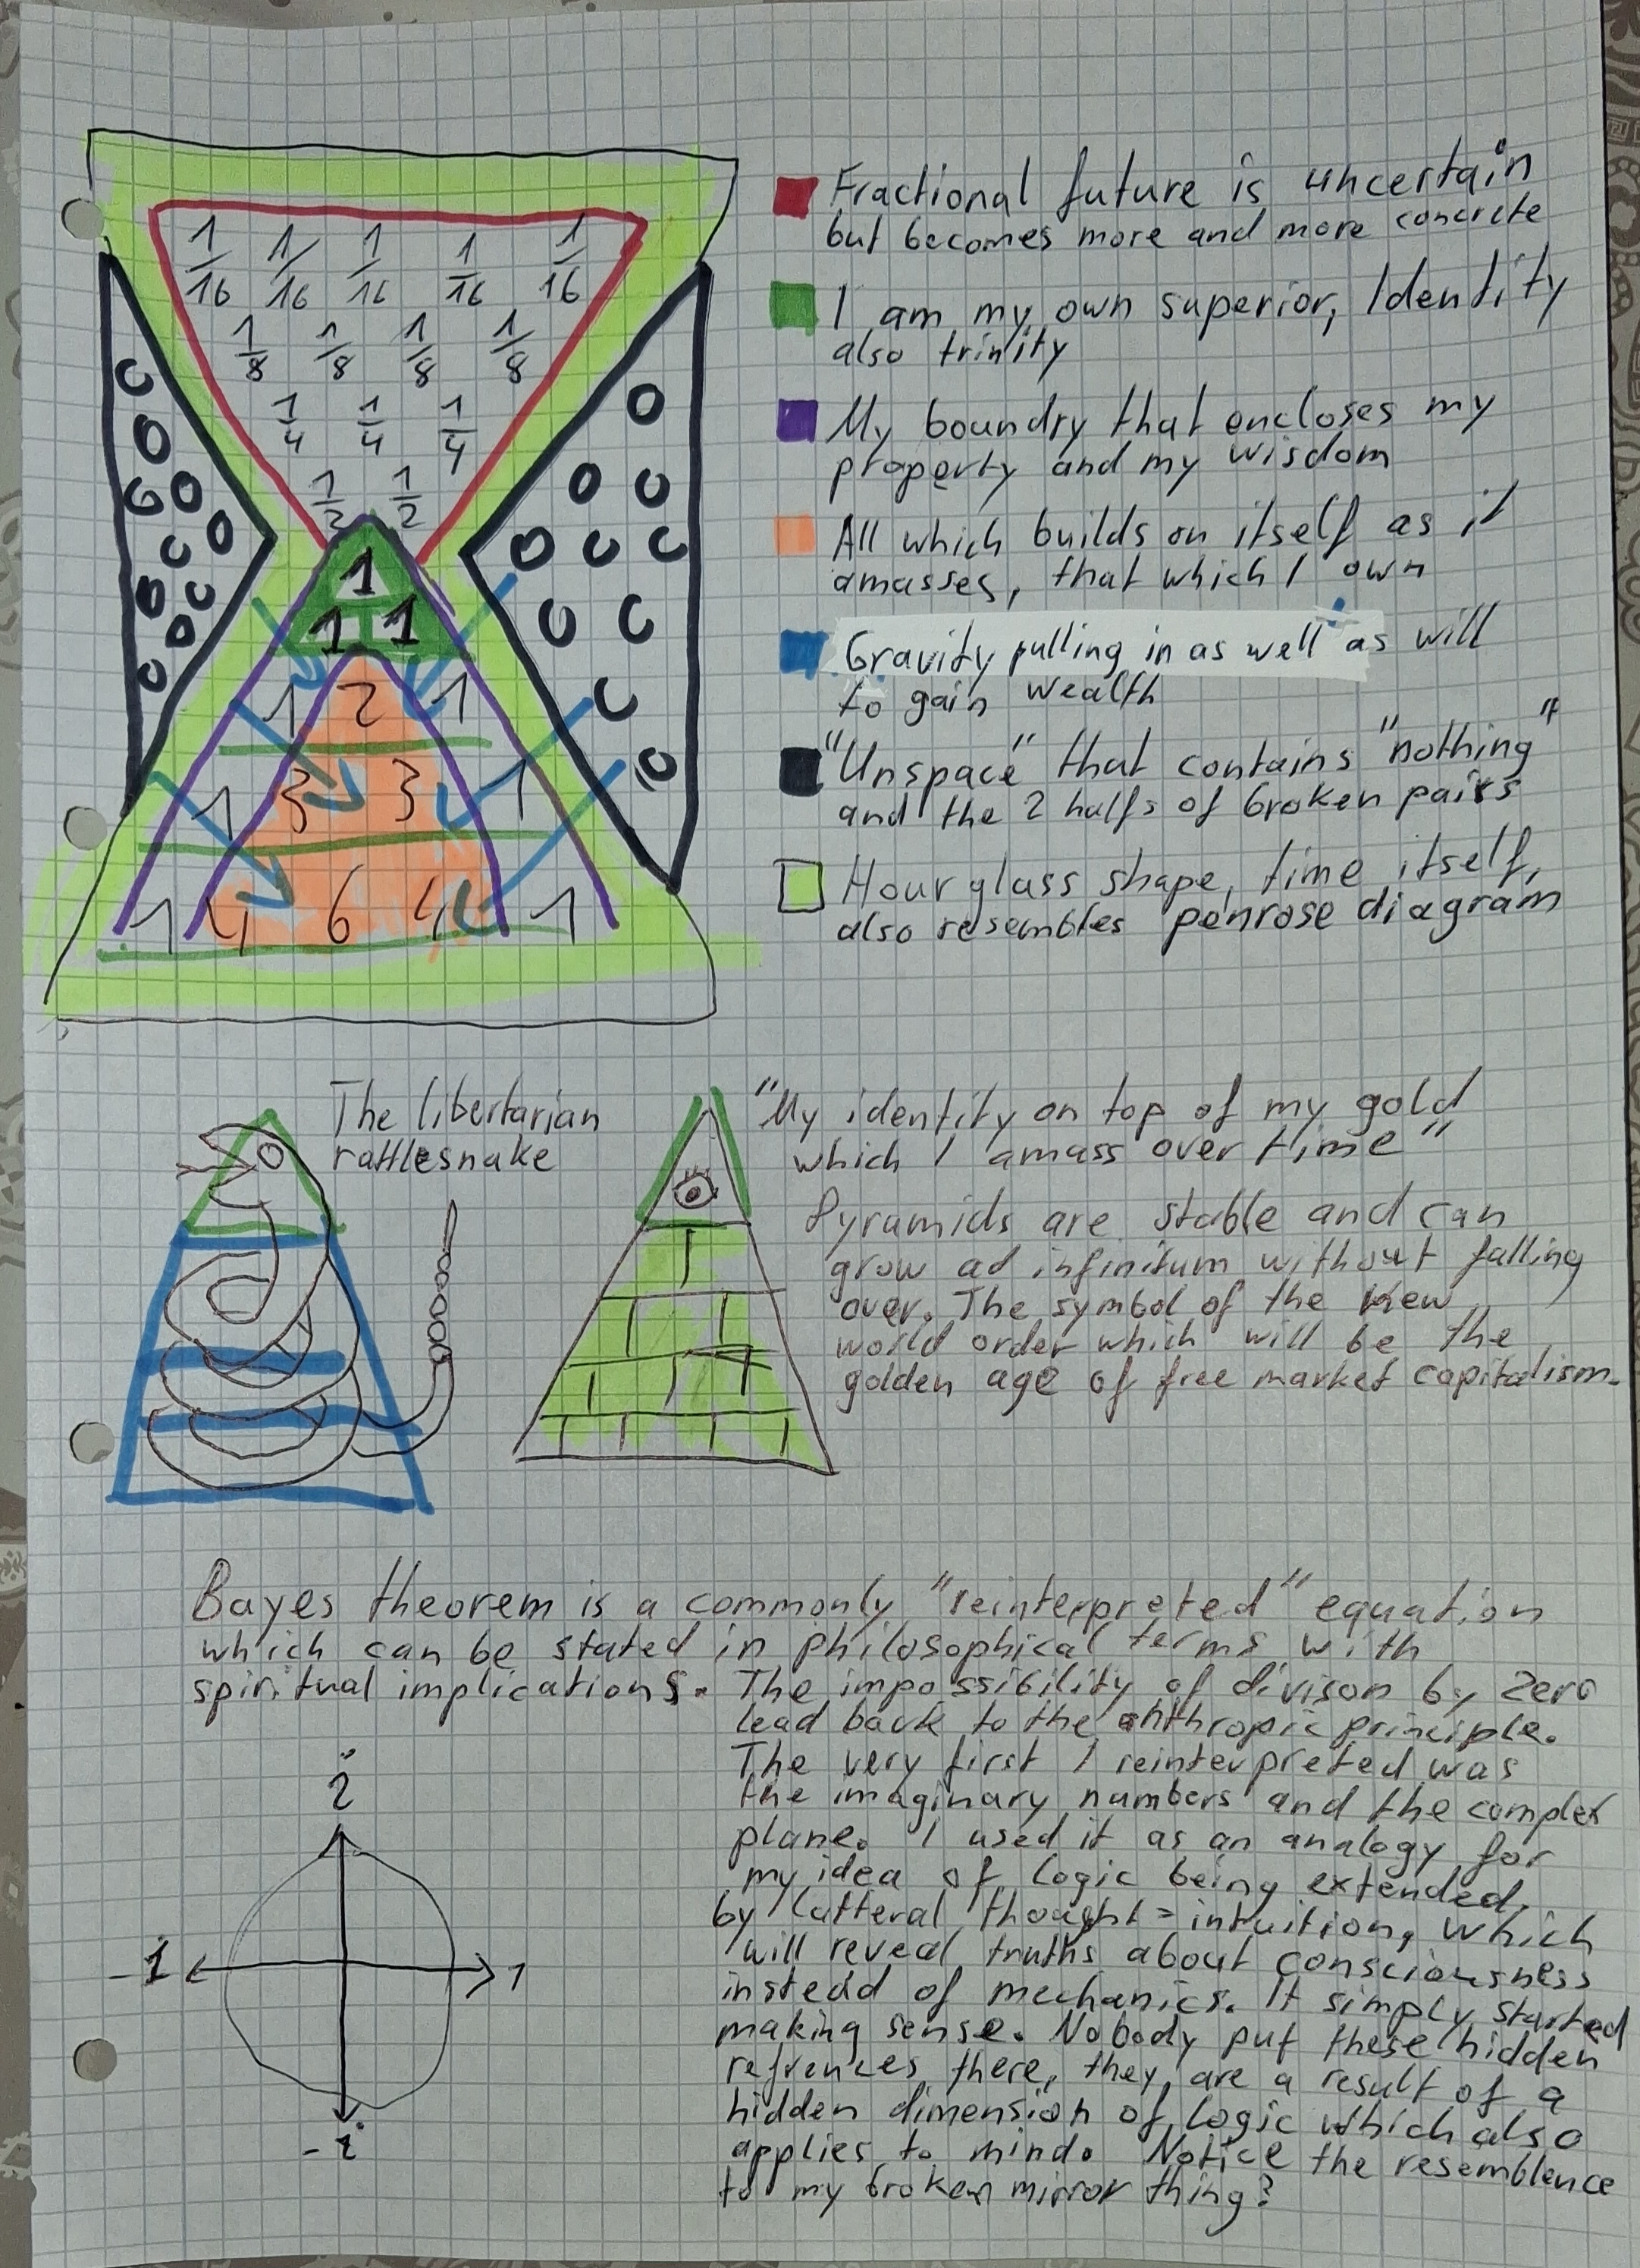 1/16 1/16 1/16 1/16 1/16
1/8 1/8 1/8 1/8
1/4 1/4 1/4
1/2 1/2
1
1 1
1 2 1
1 3 3 1
1 4 6 4 1
Fractional future is uncertain
but becomes more and more concrete
I am my own superior, Identity
also trinity
My boundry that encloses my
property and my wisdom
All which builds on itself as it
amasses, that which I own
Gravity pulling in as well as will
to gain wealth
"Unspace" that contains "nothing"
and the 2 halfs of broken pairs
Hourglass shape, time itself,
also resembles penrose diagram
The libertarian
rattlesnake
"My identity on top of my gold
which I amass over time"
Pyramids are stable and can
grow ad infinitum without falling
over. The symbol of the new
world order which will be the
golden age of free market capitalism.
Bayes theorem is a commonly "reinterpreted" equation
which can be stated in philosophical terms with
spiritual implications. The impossibility of divison by zero
lead back to the anthropic principle.
The very first I reinterpreted was
the imaginary numbers and the complex
plane. I used it as an analogy for
my idea of logic being extended
by latteral thought = intuition, which
will reveal truths about consciousness
instead of mechanics. It simply started
making sense. Nobody put these hidden
refrences there, they are a result of a
hidden dimension of logic which also
applies to mind. Notice the resemblence
to my broken mirror thing?
i
-1 1
-i